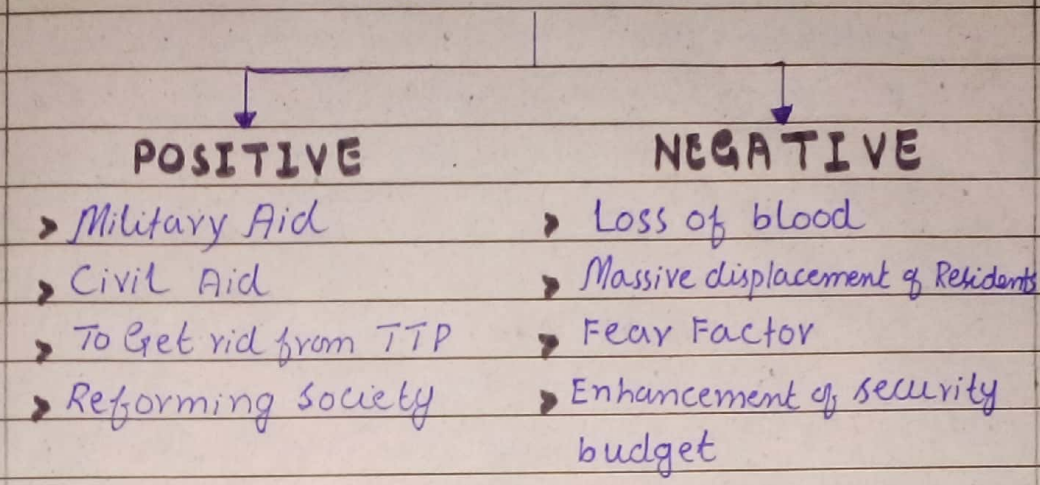 POSITIVE
> Military Aid
> Civil Aid
> To Get rid from TTP
> Reforming Society
NEGATIVE
> Loss of blood
> Massive displacement of Residents
> Fear Factor
> Enhancement of security
budget